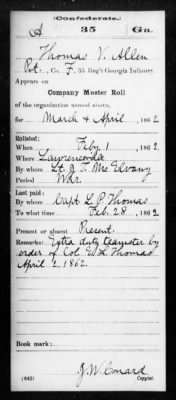 Confederate.
A 35 Ga.
Thomas V. Allen
Pvt., Co. F, 35 Reg't Georgia Infantry.
Appears on
Company Muster Roll
of the organization named above,
for March & April, 1862
Enlisted:
When Feby 1, 1862
Where Lawrenceville
By whom Lt. J. T. McElvany
Period War.
Last paid:
By whom Capt. L. P. Thomas
To what time Feb. 28, 1862
Present or absent Present.
Remarks: Extra duty teamster by
order of Col E. L. Thomas
April 2, 1862.
Book mark:
(642)
J. W. Conard
Copyist.